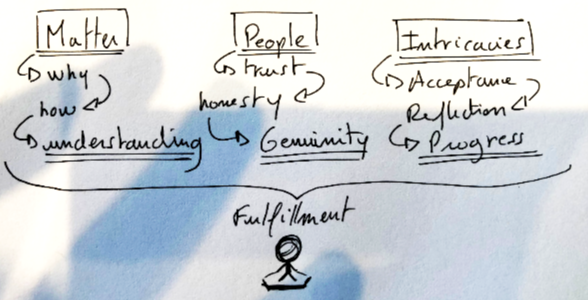 Matter
why
how
understanding
People
trust
honesty
Genuinity
Intricacies
Acceptance
Reflection
Progress
Fulfillment